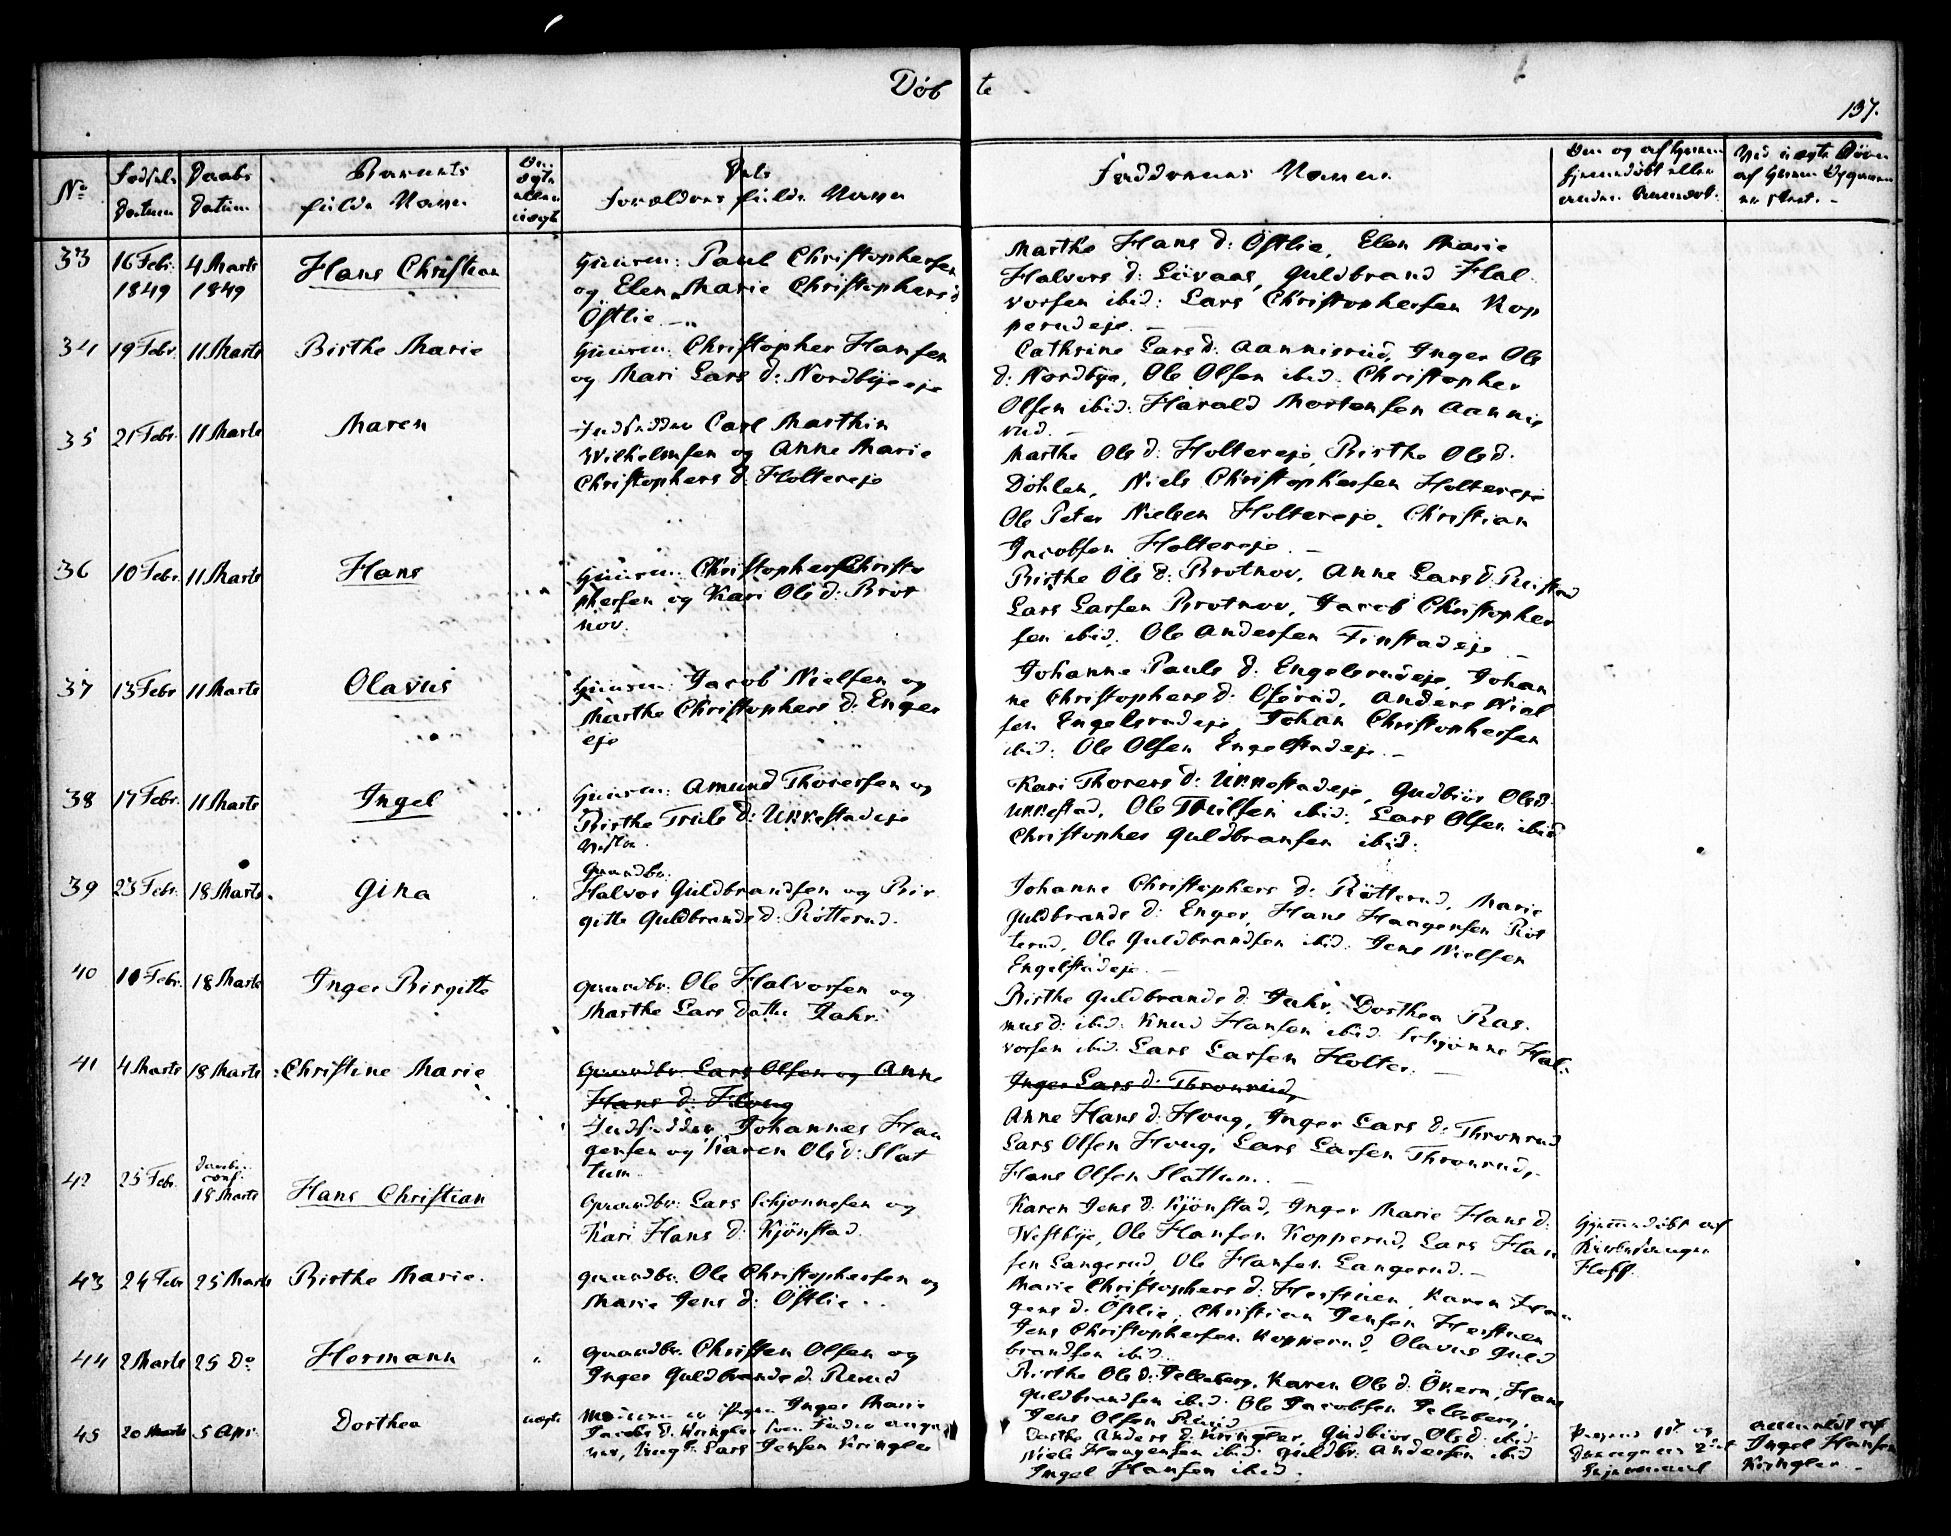 Döb te
137.
No
Fødsels Datum
Daabs Datum
Barnets fulde Navn
Om ægte eller uægte
Dets Forældres fulde Navn
Faddernes Navne
33 16 Febr. 1849 4 Marts 1849 Hans Christian
Huusm: Paul Christophersen
og Elen Marie Christophers d
Östlie
Marthe Hans d: Östlie, Elen Marie
Halvors d: Lövaas, Guldbrand Hal
vorsen ibid: Lars Christophersen Kop
perudeje.
34 19 Febr. 11 Marts Birthe Marie
Huusm: Christopher Hansen
og Mari Lars d: Nordbyeeje
Cathrine Lars d: Aannerud, Inger Ols
d: Nordbye, Ole Olsen ibid: Christopher
Olsen ibid: Harald Mortensen Aanne
rud.
35 21 Febr. 11 Marts Maren
Indsidder Carl Marthin
Wilhelmsen og Anne Marie
Christophers d: Holtereje
Marthe Ols d: Holtereje, Birthe Ols d:
Döhlen, Niels Christophersen Holtereje
Ole Peter Nielsen Holtereje, Christian
Jacobsen Holtereje.
36 10 Febr. 11 Marts Hans
Huusm: Christopher Christo
phersen og Kari Ols d: Brot
nov.
Birthe Ols d: Brotnov, Anne Lars d: Reistad
Lars Larsen Brotnov, Jacob Christopher
sen ibid: Ole Andersen Finstadeje
37 13 Febr 11 Marts Olavus
Huusm: Jacob Nielsen og
Marthe Christophers d: Enger
eje
Johanne Pauls d: Engelsrudeje, Johan
ne Christophers d: Anders Niel
sen Engelsrudeje, Johan Christophersen
ibid: Ole Olsen Engelstadeje.
38 17 Febr. 11 Marts Ingel
Huusm: Amund Thoresen og
Birthe Truls d: Unnestadeje
Kari Thorers d: Unnestadeje, Gudbiör Ols d.
Unnestad, Ole Trulsen ibid: Lars Olsen ibid
Christopher Guldbransen ibid:
39 23 Febr. 18 Marts Gina
Gaardbr:
Halvor Guldbrandsen og Bir
gitte Guldbrands d: Rötterud.
Johanne Christophers d: Rötterud, Marie
Guldbrands d: Enger, Hans Haagensen Röt
terud, Ole Guldbrandsen ibid: Jens Nielsen
Engelstadeje.
40 10 Febr. 18 Marts Inger Birgitte
Gaardbr: Ole Halvorsen og
Marthe Lars datter Jahr.
Birthe Guldbrands d: Jahr, Dorthea Ras
mus d: ibid: Knud Hansen ibid: Schjönne Hal
vorsen ibid: Lars Larsen Holter.
41 4 Marts 18 Marts Christine Marie
Gaardbr: Lars Olsen og Anne
Hans d: Houg
Indsidder Johannes Haa
gensen og Karen Ols d: Slat
tum
Inger Lars d: Thronrud,
Anne Hans d: Houg, Inger Lars d: Thronrud
Lars Olsen Houg, Lars Larsen Thronrud,
Hans Olsen Slattum.
42 25 Febr. conf. 18 Marts Hans Christian
Gaardbr: Lars Schjonnesen og
Kari Hans d: Kjönstad.
Karen Jens d: Kjönstad, Inger Marie Hans d:
Westbye, Ole Hansen Kopperud, Lars Han
sen Langerud, Ole Hansen Langerud.
Hjemmedöbt af
Kirkesanger
Hoff.
43 24 Febr 25 Marts Birthe Marie.
Gaardbr: Ole Christophersen og
Marie Jens d: Östlie
Marie Christophers d: Herstuen, Karen Haa
gens d: Östlie, Christian Jensen Herstuen
Jens Christophersen Kopperud, Olavus Guld
brandsen ibid
44 2 Marts 25 Do Hermann
Gaardbr: Christen Olsen og
Inger Guldbrands d: Ruud
Birthe Ols d: Jelleberg, Karen Ols d: Ökern, Hans
Guldbrandsen ibid: Ole Jacobsen Jelleberg,
Jens Olsen Ruud
45 20 Marts 5 Apr. Dorthea uægte
Moderen er Pigen Inger Marie
Jacobs d: Kringler som Fader
Ungk: Lars Jensen Kringler
Dorthe Anders d: Kringler, Gudbiör Ols d: ibid:
Niels Haagensen ibid: Guldbr: Andersen ibid
Ingel Hansen ibid.
Pigens 1ste og
2det
Leiermaal
anmeldt af
Ingel Hansen
Kringler